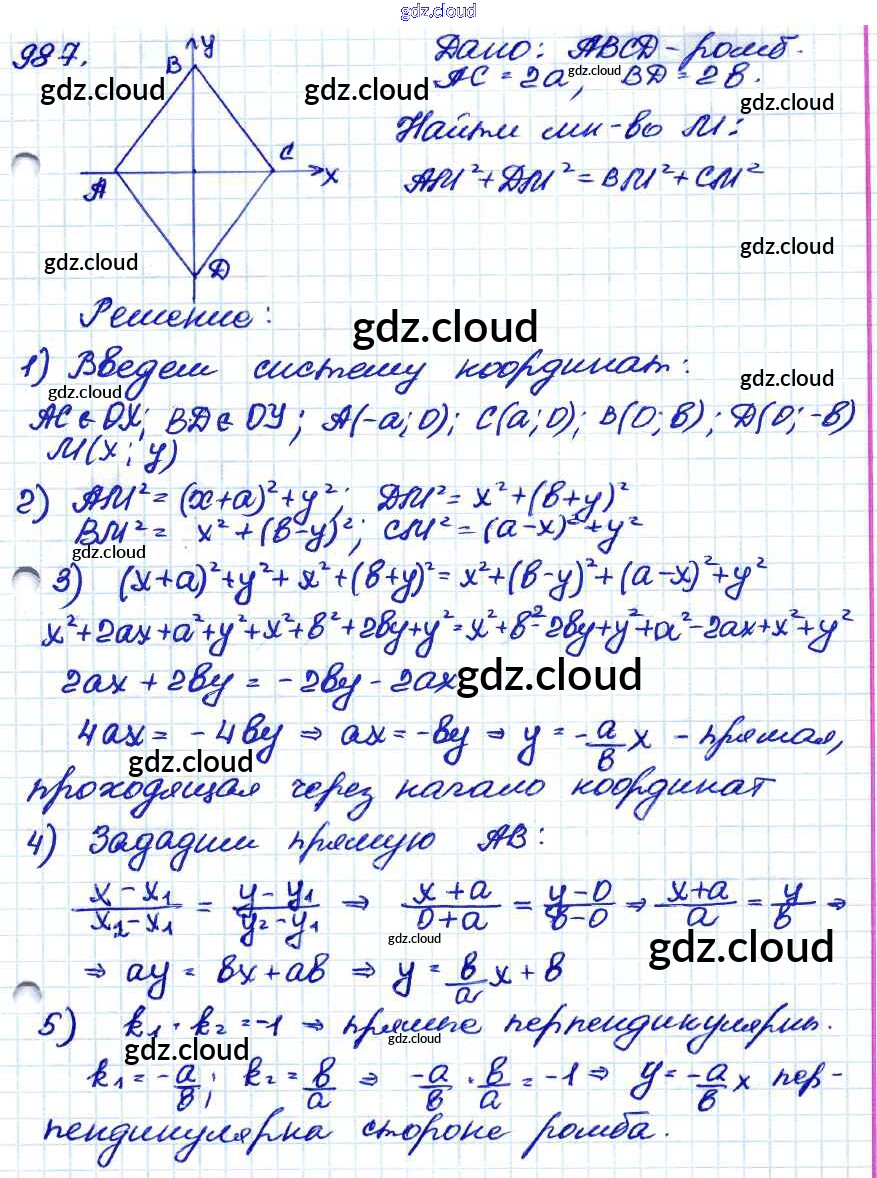 gdz.cloud
987.
y
B
C
A
x
D
Дано: ABCD - ромб.
AC = 2a, BD = 2в.
gdz.cloud
gdz.cloud
gdz.cloud
gdz.cloud
Найти мн-во M:
AM² + DM² = BM² + CM²
gdz.cloud
gdz.cloud
Решение:
gdz.cloud
1) Введем систему координат:
gdz.cloud
gdz.cloud
AC ∈ OX; BD ∈ OY; A(-a; 0); C(a; 0); B(0; в); D(0; -в)
M(x; y)
2) AM² = (x+a)² + y²; DM² = x² + (в+y)²
BM² = x² + (в-y)²; CM² = (a-x)² + y²
gdz.cloud
3) (x+a)² + y² + x² + (в+y)² = x² + (в-y)² + (a-x)² + y²
x² + 2ax + a² + y² + x² + в² + 2вy + y² = x² + в² - 2вy + y² + a² - 2ax + x² + y²
2ax + 2вy = -2вy - 2ax
gdz.cloud
4ax = -4вy ⇒ ax = -вy ⇒ y = -a/в x - прямая,
gdz.cloud
проходящая через начало координат
4) Зададим прямую AB:
(x - x₁)/(x₂ - x₁) = (y - y₁)/(y₂ - y₁) ⇒ (x + a)/(0 + a) = (y - 0)/(в - 0) ⇒ (x + a)/a = y/в ⇒
gdz.cloud
gdz.cloud
⇒ ay = вx + aв ⇒ y = в/a x + в
5) k₁ · k₂ = -1 ⇒ прямые перпендикулярны.
gdz.cloud
gdz.cloud
k₁ = -a/в; k₂ = в/a ⇒ -a/в · в/a = -1 ⇒ y = -a/в x пер-
пендикулярна стороне ромба.